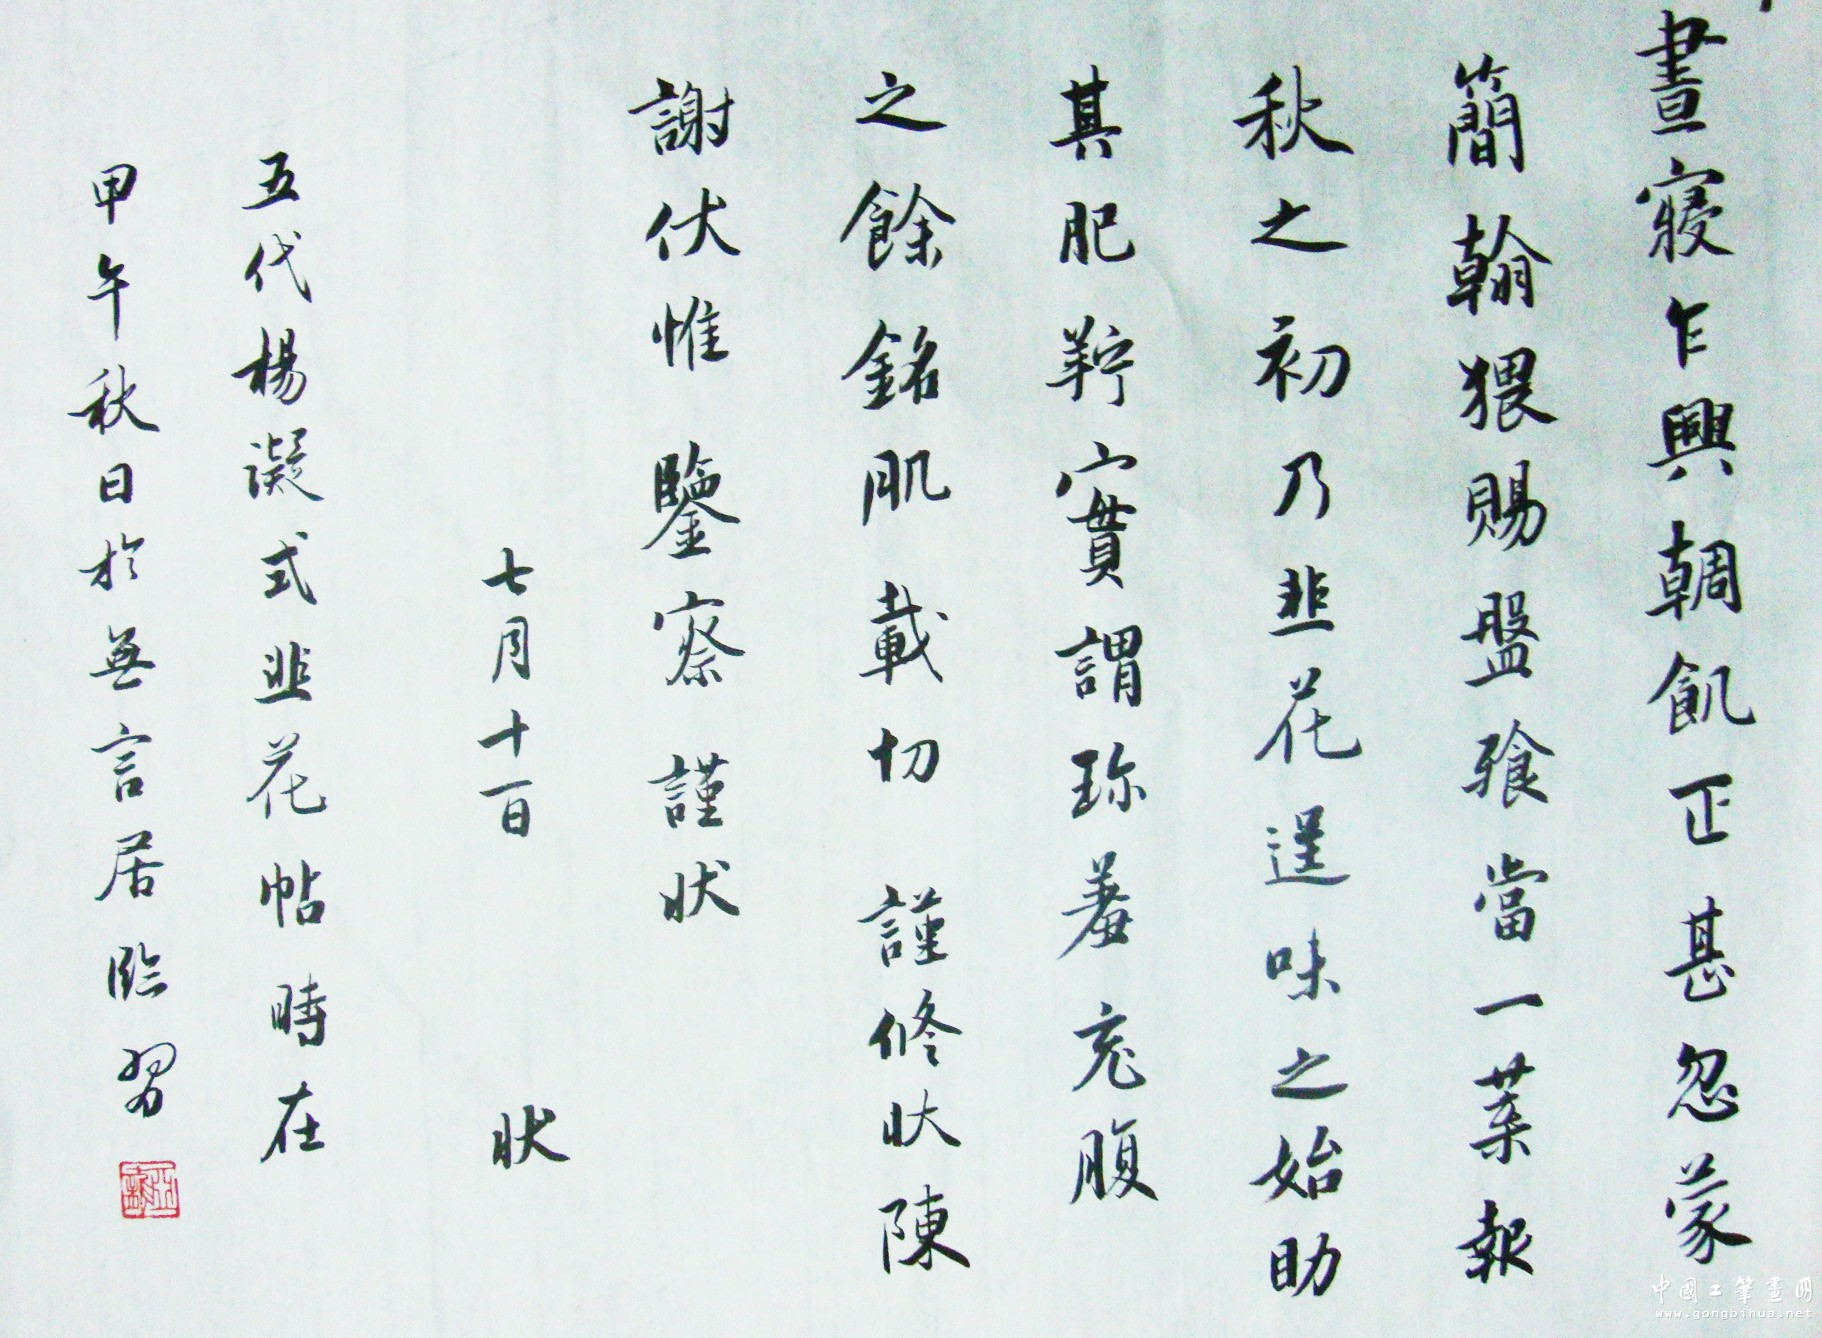 晝寢乍興輖飢正甚忽蒙
簡翰猥賜盤飧當一葉報
秋之初乃韭花逞味之始助
其肥羜實謂珍羞充腹
之餘銘肌載切謹修狀陳
謝伏惟鑒察謹狀
七月十一日 狀
五代楊凝式韭花帖時在
甲午秋日於無言居臨習
中國工筆畫網
www.gongbihua.net